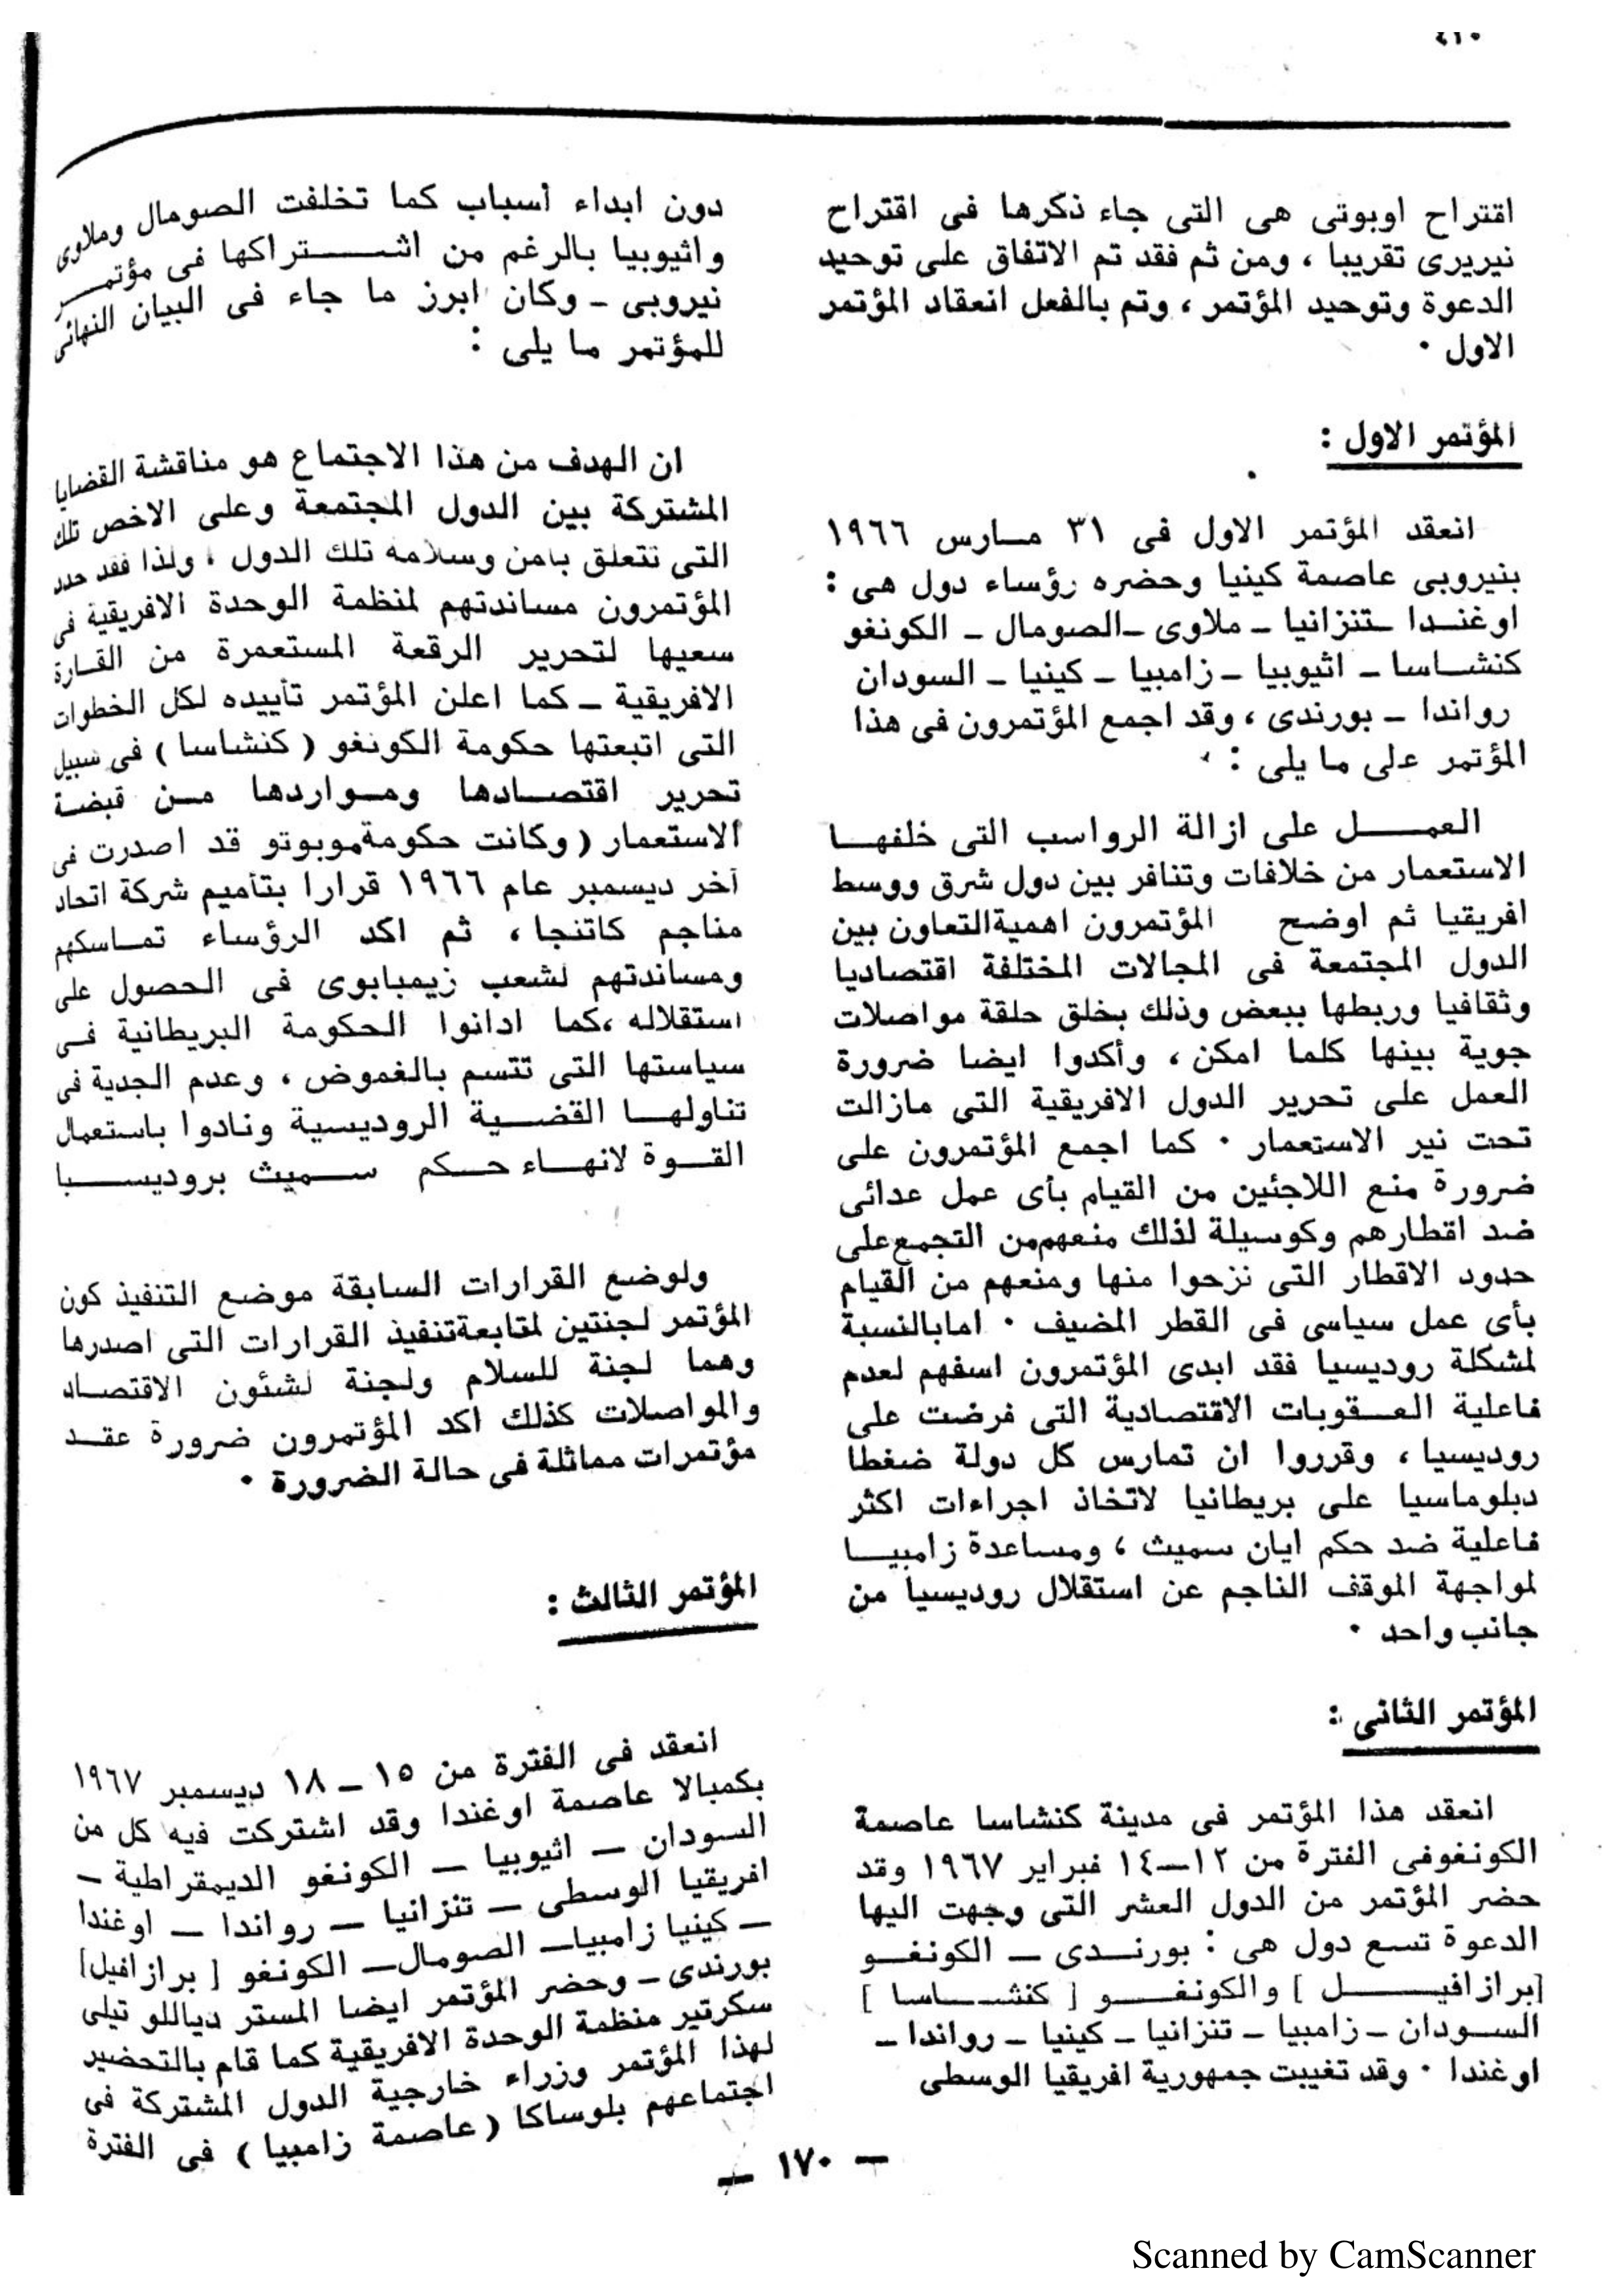 ٤١٠
اقتراح اوبوتى هى التى جاء ذكرها فى اقتراح
نيريرى تقريبا ، ومن ثم فقد تم الاتفاق على توحيد
الدعوة وتوحيد المؤتمر ، وتم بالفعل انعقاد المؤتمر
الاول ٠
المؤتمر الاول :
انعقد المؤتمر الاول فى ٣١ مارس ١٩٦٦
بنيروبى عاصمة كينيا وحضره رؤساء دول هى :
اوغندا ـ تنزانيا ـ ملاوى ـ الصومال ـ الكونغو
كنشاسا ـ اثيوبيا ـ زامبيا ـ كينيا ـ السودان
رواندا ـ بورندى ، وقد اجمع المؤتمرون فى هذا
المؤتمر على ما يلى :
العمل على ازالة الرواسب التى خلفها
الاستعمار من خلافات وتنافر بين دول شرق ووسط
افريقيا ثم اوضح المؤتمرون اهمية التعاون بين
الدول المجتمعة فى المجالات المختلفة اقتصاديا
وثقافيا وربطها ببعض وذلك بخلق حلقة مواصلات
جوية بينها كلما امكن ، وأكدوا ايضا ضرورة
العمل على تحرير الدول الافريقية التى مازالت
تحت نير الاستعمار ٠ كما اجمع المؤتمرون على
ضرورة منع اللاجئين من القيام بأى عمل عدائى
ضد اقطارهم وكوسيلة لذلك منعهم من التجمع على
حدود الاقطار التى نزحوا منها ومنعهم من القيام
بأى عمل سياسى فى القطر المضيف ٠ اما بالنسبة
لمشكلة روديسيا فقد ابدى المؤتمرون اسفهم لعدم
فاعلية العقوبات الاقتصادية التى فرضت على
روديسيا ، وقرروا ان تمارس كل دولة ضغطا
دبلوماسيا على بريطانيا لاتخاذ اجراءات اكثر
فاعلية ضد حكم ايان سميث ، ومساعدة زامبيا
لمواجهة الموقف الناجم عن استقلال روديسيا من
جانب واحد ٠
المؤتمر الثانى :
انعقد هذا المؤتمر فى مدينة كنشاسا عاصمة
الكونغو فى الفترة من ١٢ـ١٤ فبراير ١٩٦٧ وقد
حضر المؤتمر من الدول العشر التى وجهت اليها
الدعوة تسع دول هى : بورندى ـ الكونغو
[برازافيل] والكونغو [ كنشاسا ]
السودان ـ زامبيا ـ تنزانيا ـ كينيا ـ رواندا ـ
اوغندا ٠ وقد تغيبت جمهورية افريقيا الوسطى
دون ابداء أسباب كما تخلفت الصومال وملاوى
واثيوبيا بالرغم من اشتراكها فى مؤتمر
نيروبى ـ وكان ابرز ما جاء فى البيان النهائى
للمؤتمر ما يلى :
ان الهدف من هذا الاجتماع هو مناقشة القضايا
المشتركة بين الدول المجتمعة وعلى الاخص تلك
التى تتعلق بأمن وسلامة تلك الدول ، ولذا فقد حدد
المؤتمرون مساندتهم لمنظمة الوحدة الافريقية فى
سعيها لتحرير الرقعة المستعمرة من القارة
الافريقية ـ كما اعلن المؤتمر تأييده لكل الخطوات
التى اتبعتها حكومة الكونغو ( كنشاسا ) فى سبيل
تحرير اقتصادها ومواردها من قبضة
الاستعمار ( وكانت حكومة موبوتو قد اصدرت فى
آخر ديسمبر عام ١٩٦٦ قرارا بتأميم شركة اتحاد
مناجم كاتنجا ، ثم اكد الرؤساء تماسكهم
ومساندتهم لشعب زيمبابوى فى الحصول على
استقلاله ، كما ادانوا الحكومة البريطانية فى
سياستها التى تتسم بالغموض ، وعدم الجدية فى
تناولها القضية الروديسية ونادوا باستعمال
القوة لانهاء حكم سميث بروديسيا
ولوضع القرارات السابقة موضع التنفيذ كون
المؤتمر لجنتين لمتابعة تنفيذ القرارات التى اصدرها
وهما لجنة للسلام ولجنة لشئون الاقتصاد
والمواصلات كذلك اكد المؤتمرون ضرورة عقد
مؤتمرات مماثلة فى حالة الضرورة ٠
المؤتمر الثالث :
انعقد فى الفترة من ١٥ ـ ١٨ ديسمبر ١٩٦٧
بكمبالا عاصمة اوغندا وقد اشتركت فيه كل من
السودان ـ اثيوبيا ـ الكونغو الديمقراطية ـ
افريقيا الوسطى ـ تنزانيا ـ رواندا ـ اوغندا
ـ كينيا زامبيا ـ الصومال ـ الكونغو [ برازافيل]
بورندى ـ وحضر المؤتمر ايضا المستر دياللو تيلى
سكرتير منظمة الوحدة الافريقية كما قام بالتحضير
لهذا المؤتمر وزراء خارجية الدول المشتركة فى
اجتماعهم بلوساكا ( عاصمة زامبيا ) فى الفترة
ـ ١٧٠ ـ
Scanned by CamScanner